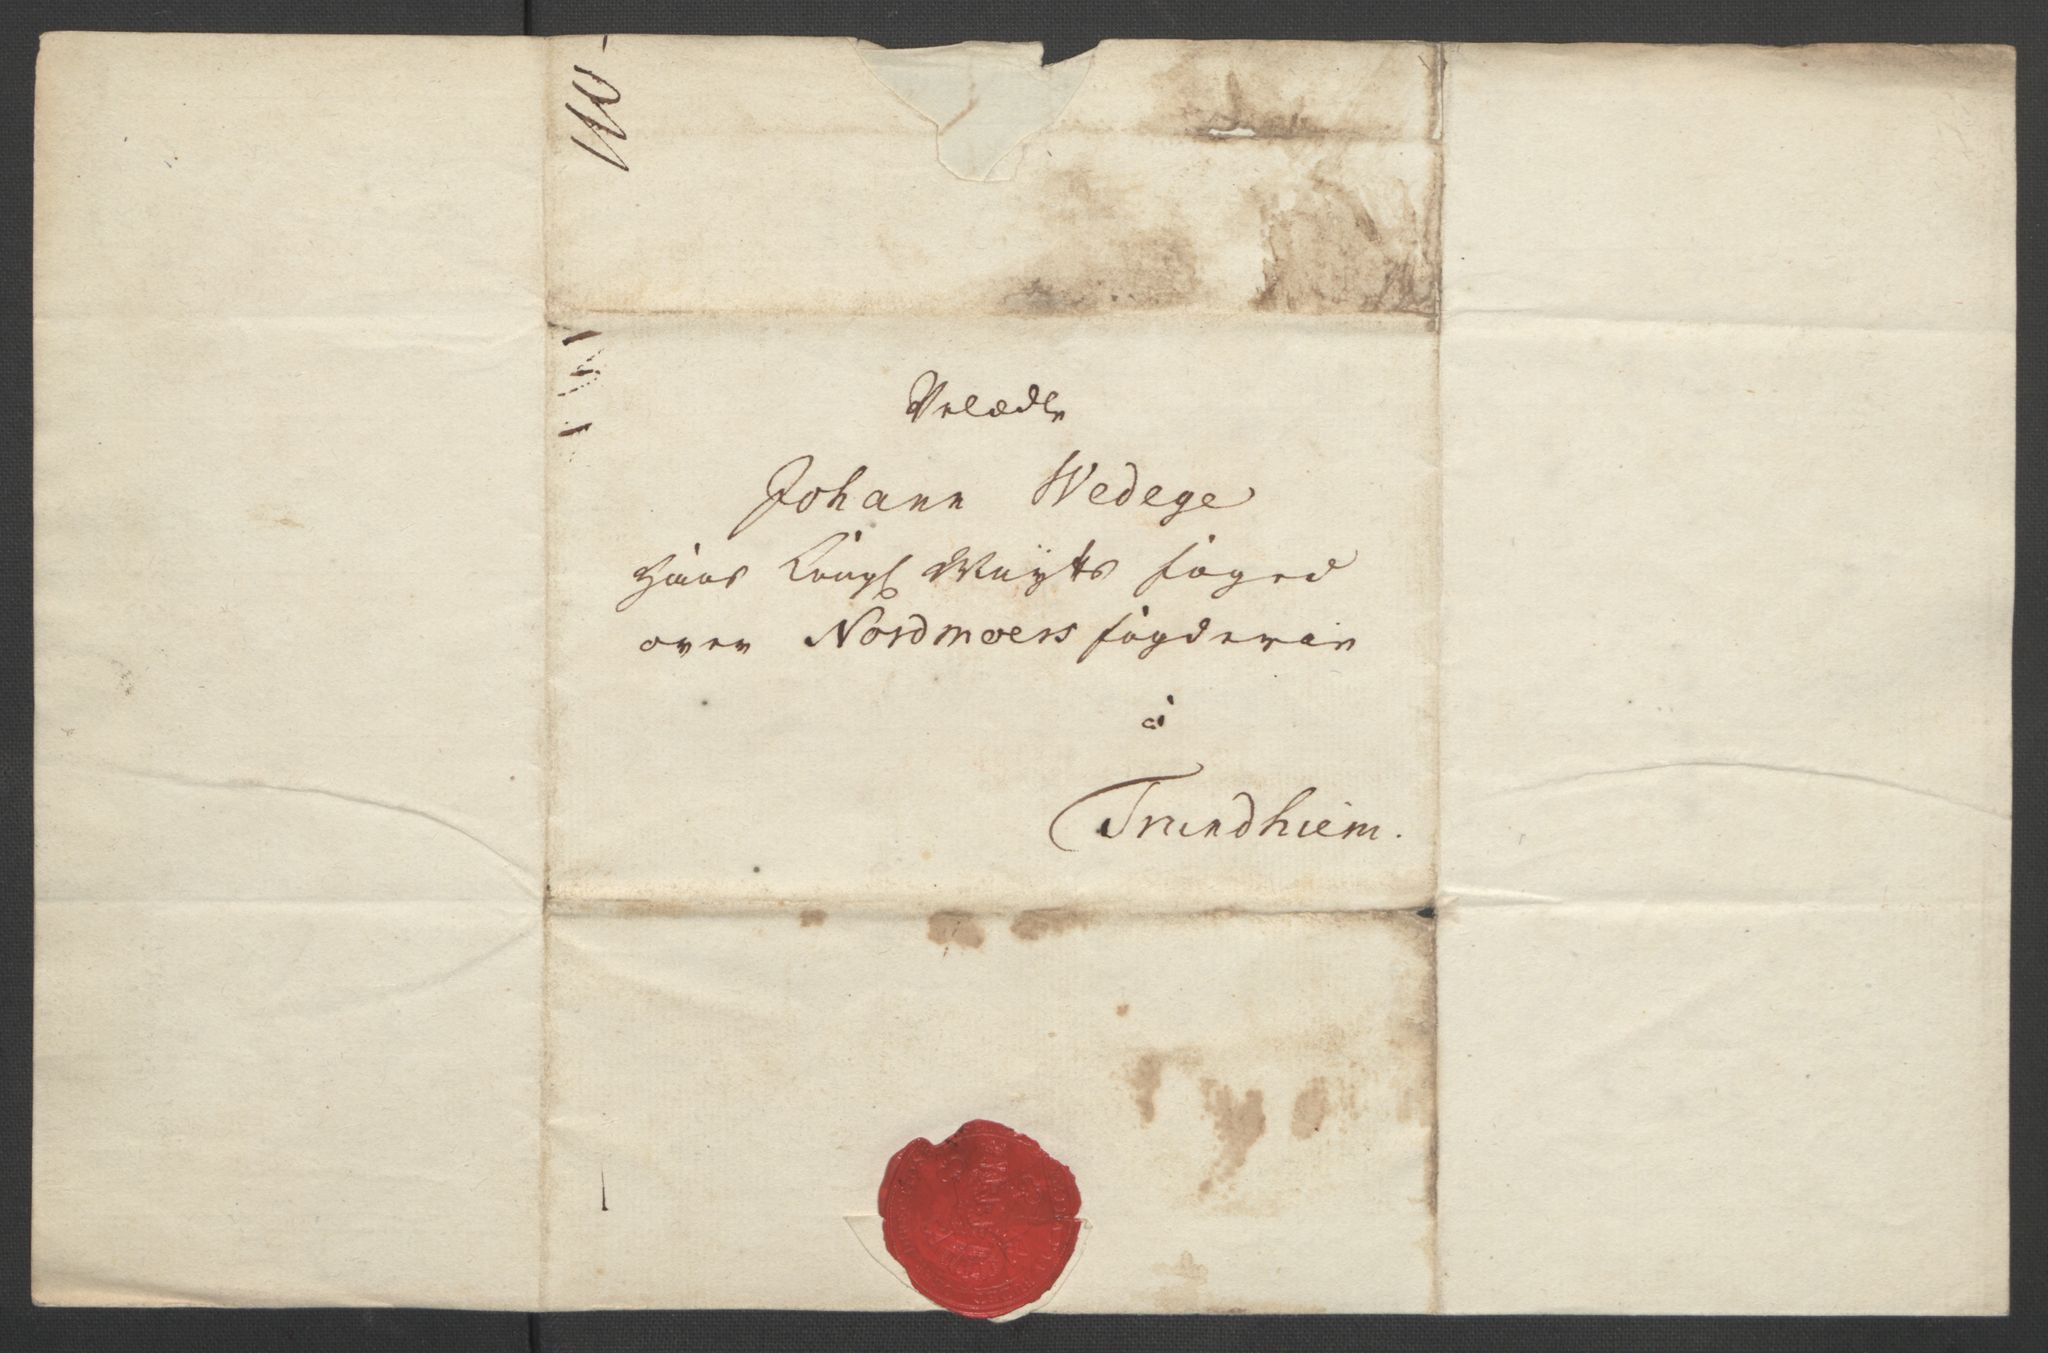 Velædle
Johann Wedege
Hans Kongl Mayts foged
over Nordmoers fogderie
à
Trundhiem.